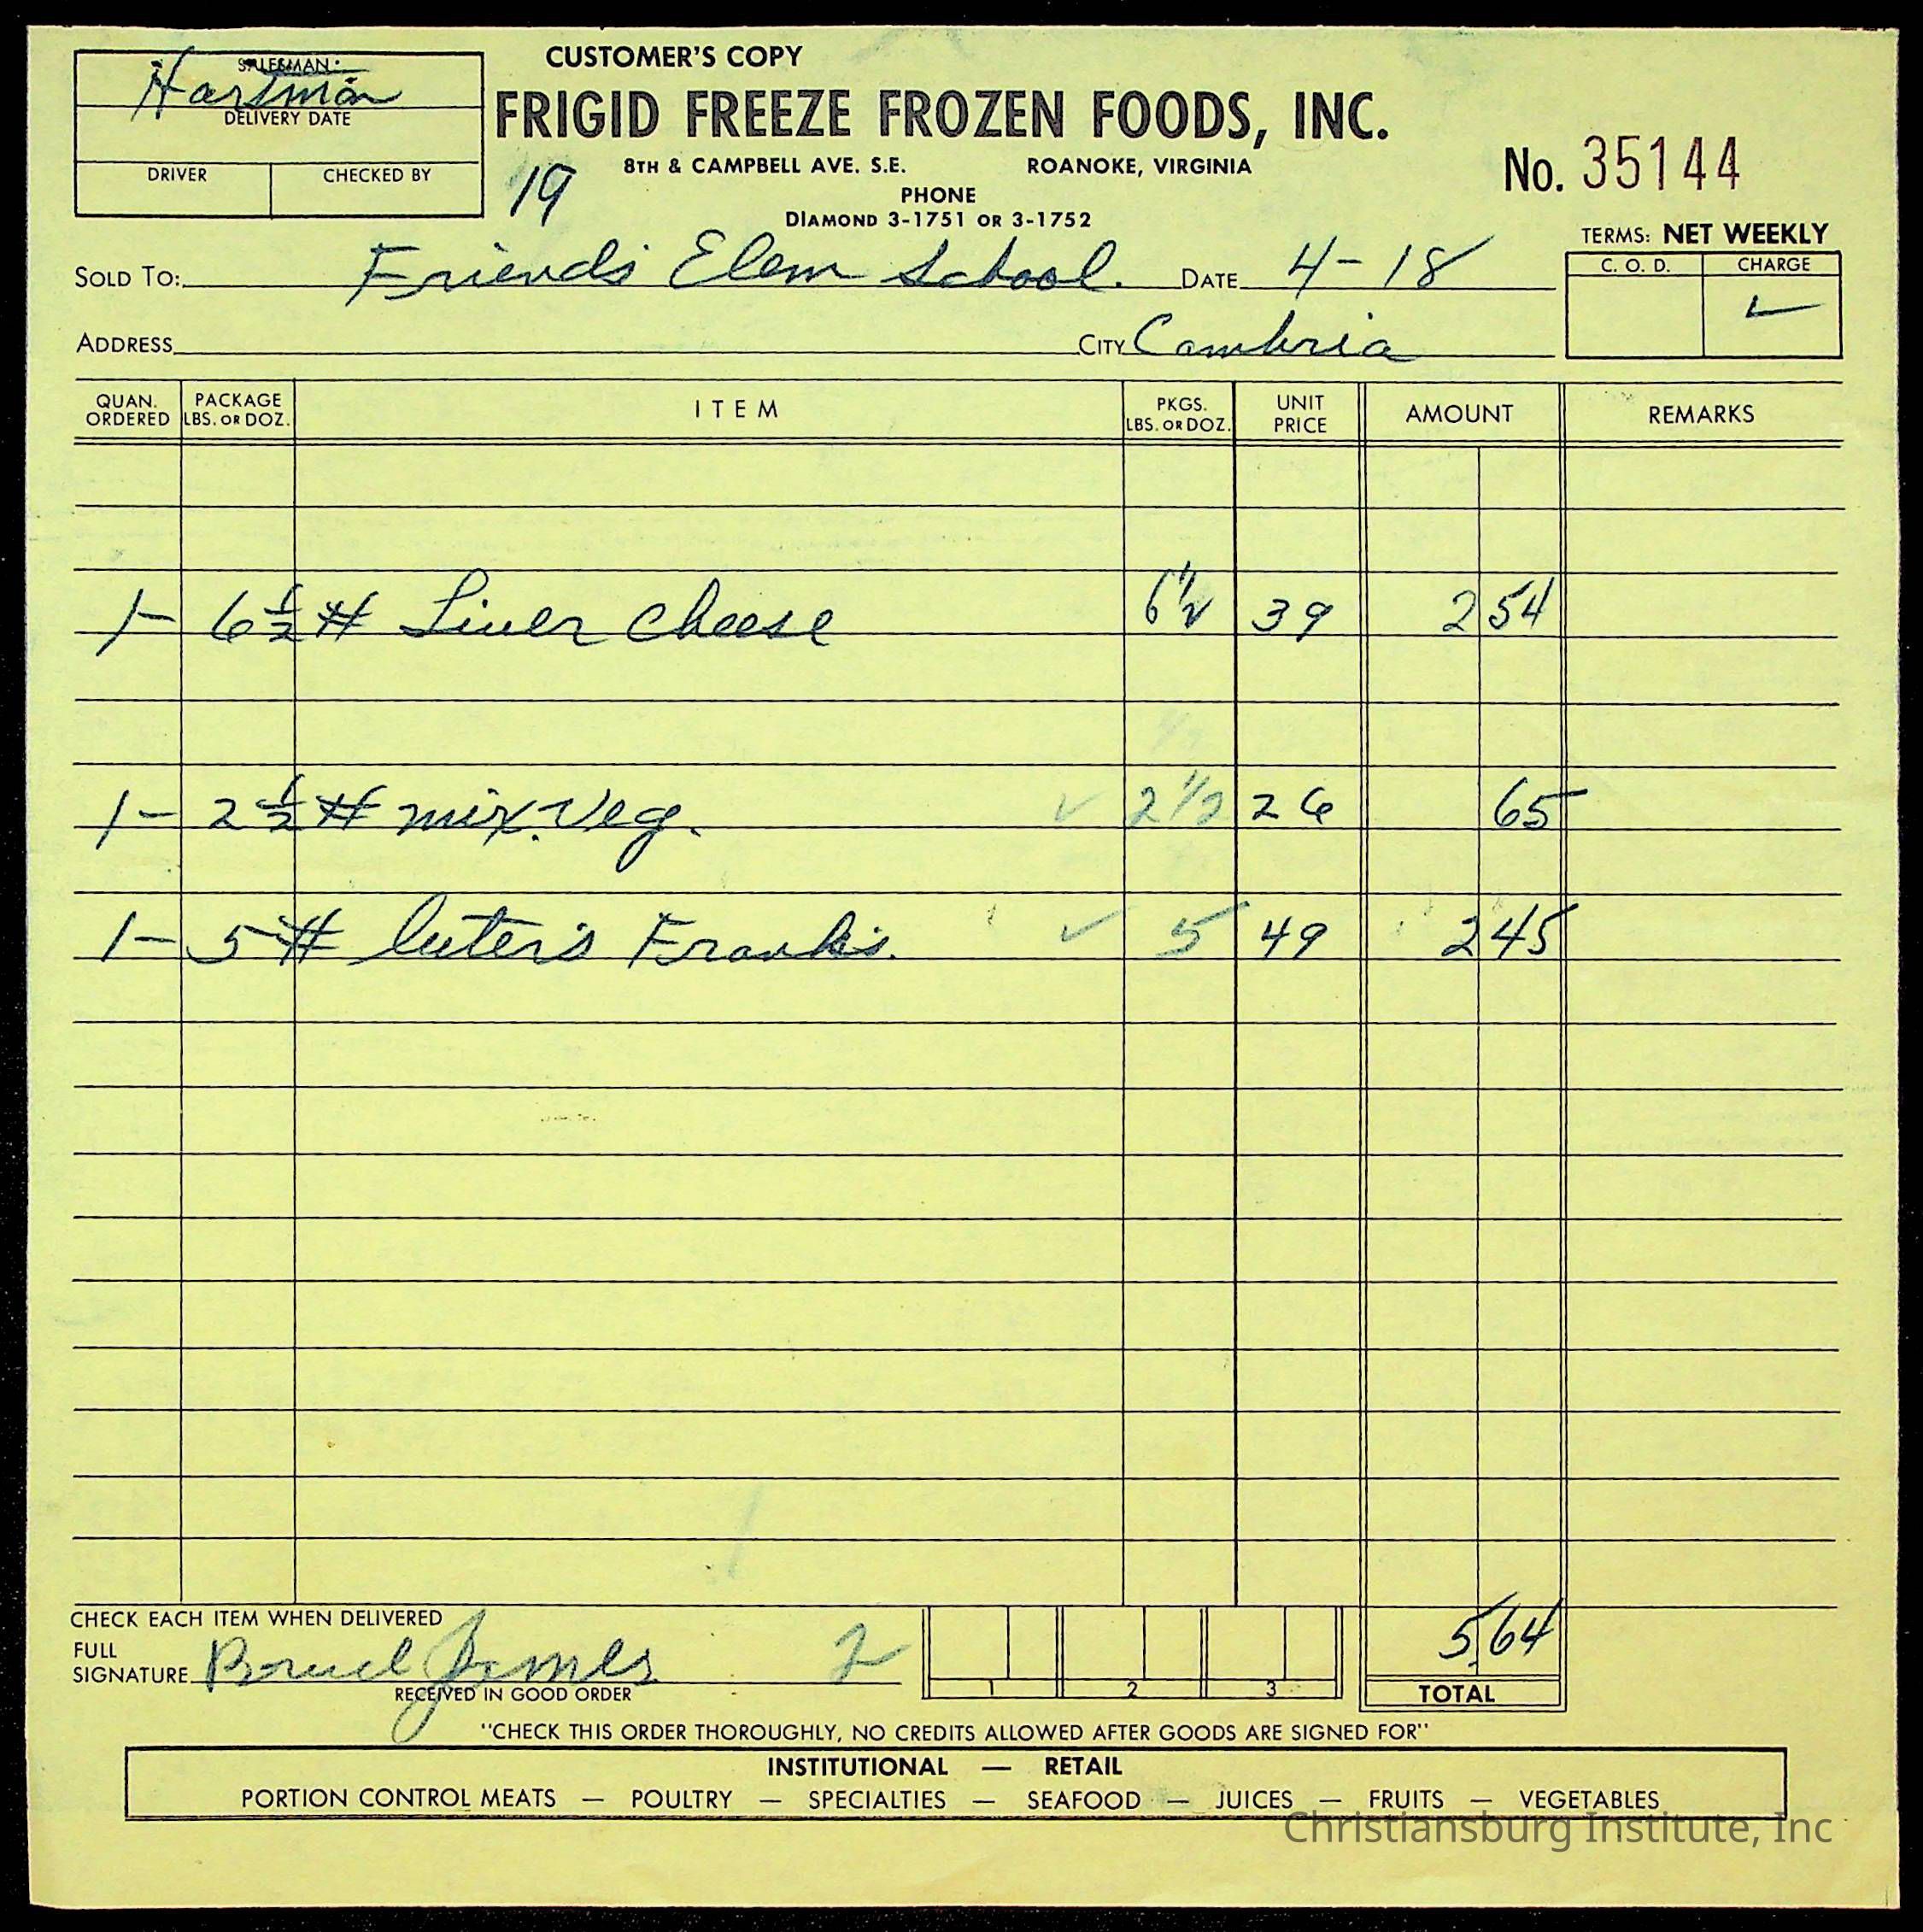 CUSTOMER'S COPY
SALESMAN:
Hartman
DELIVERY DATE
DRIVER CHECKED BY
FRIGID FREEZE FROZEN FOODS, INC.
19
8TH & CAMPBELL AVE. S.E. ROANOKE, VIRGINIA
PHONE
DIAMOND 3-1751 OR 3-1752
No. 35144
TERMS: NET WEEKLY
C. O. D. CHARGE
✓
SOLD TO: Friends Elem School. DATE 4-18
ADDRESS CITY Cambria
QUAN. ORDERED PACKAGE LBS. OR DOZ. ITEM PKGS. LBS. OR DOZ. UNIT PRICE AMOUNT REMARKS
1- 6 1/2 # Liver Cheese 6 1/2 39 2 54
1- 2 1/2 # mix. Veg. ✓ 2 1/2 26 65
1- 5 # luter's Franks. ✓ 5 49 2 45
CHECK EACH ITEM WHEN DELIVERED
FULL SIGNATURE James 2
RECEIVED IN GOOD ORDER
1 2 3
5.64
TOTAL
"CHECK THIS ORDER THOROUGHLY, NO CREDITS ALLOWED AFTER GOODS ARE SIGNED FOR"
INSTITUTIONAL — RETAIL
PORTION CONTROL MEATS — POULTRY — SPECIALTIES — SEAFOOD — JUICES — FRUITS — VEGETABLES
Christiansburg Institute, Inc